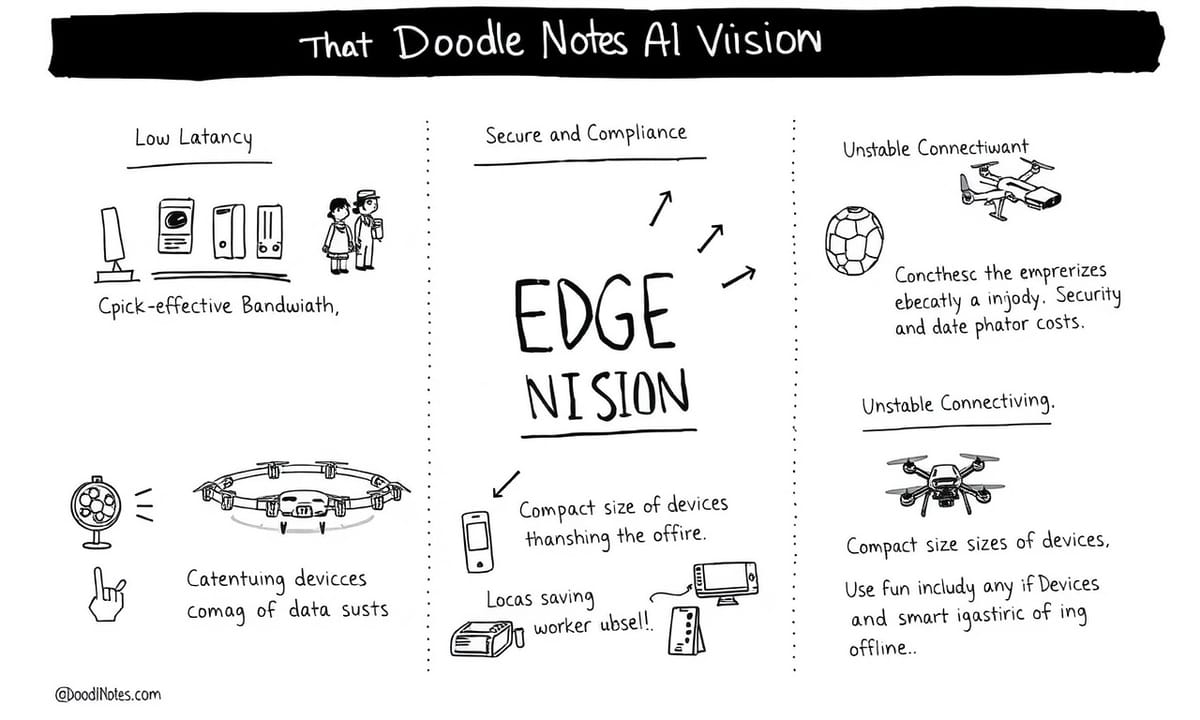 That Doodle Notes AI Viision
Low Latancy
Cpick-effective Bandwiath,
Catentuing devicces
comag of data susts
Secure and Compliance
EDGE
NISION
Compact size of devices
thanshing the offire.
Locas saving
worker ubsel!.
Unstable Connectiwant
Concthesc the emprerizes
ebecatly a injody. Security
and date phator costs.
Unstable Connectiving.
Compact size sizes of devices,
Use fun includy any if Devices
and smart igastiric of ing
offline..
@DoodlNotes.com